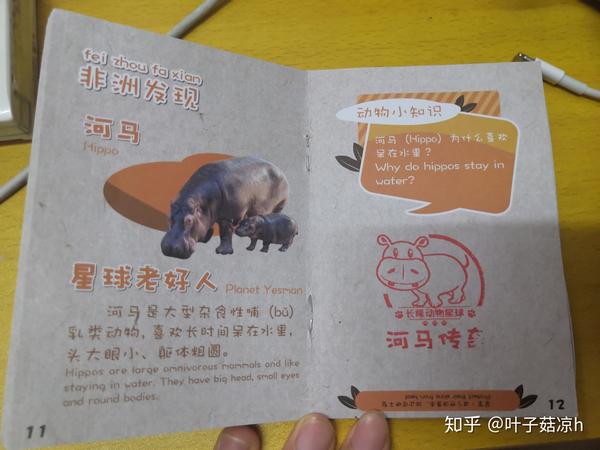 fei zhou fa xian
非洲发现
河马
Hippo
星球老好人 Planet Yesman
河马是大型杂食性哺（bǔ）
乳类动物，喜欢长时间呆在水里，
头大眼小、躯体粗圆。
Hippos are large omnivorous mammals and like
staying in water. They have big head, small eyes
and round bodies.
11
动物小知识
河马（Hippo）为什么喜欢
呆在水里？
Why do hippos stay in
water?
长隆动物星球
河马传
Protect their skins from heat
12
知乎 @叶子菇凉h